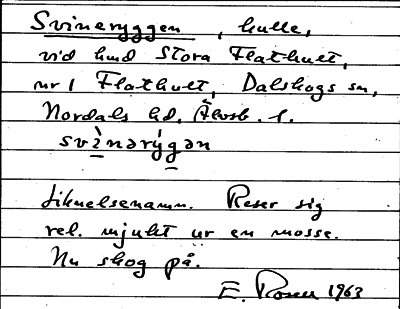 Svineryggen, kulle,
vid hmd Stora Flathult,
nr 1 Flathult, Dalskogs sn,
Nordals hd, Älvsb. l.
svìnərýgən
Liknelsenamn. Reser sig
rel. mjukt ur en mosse.
Nu skog på.
E. Rosell 1963